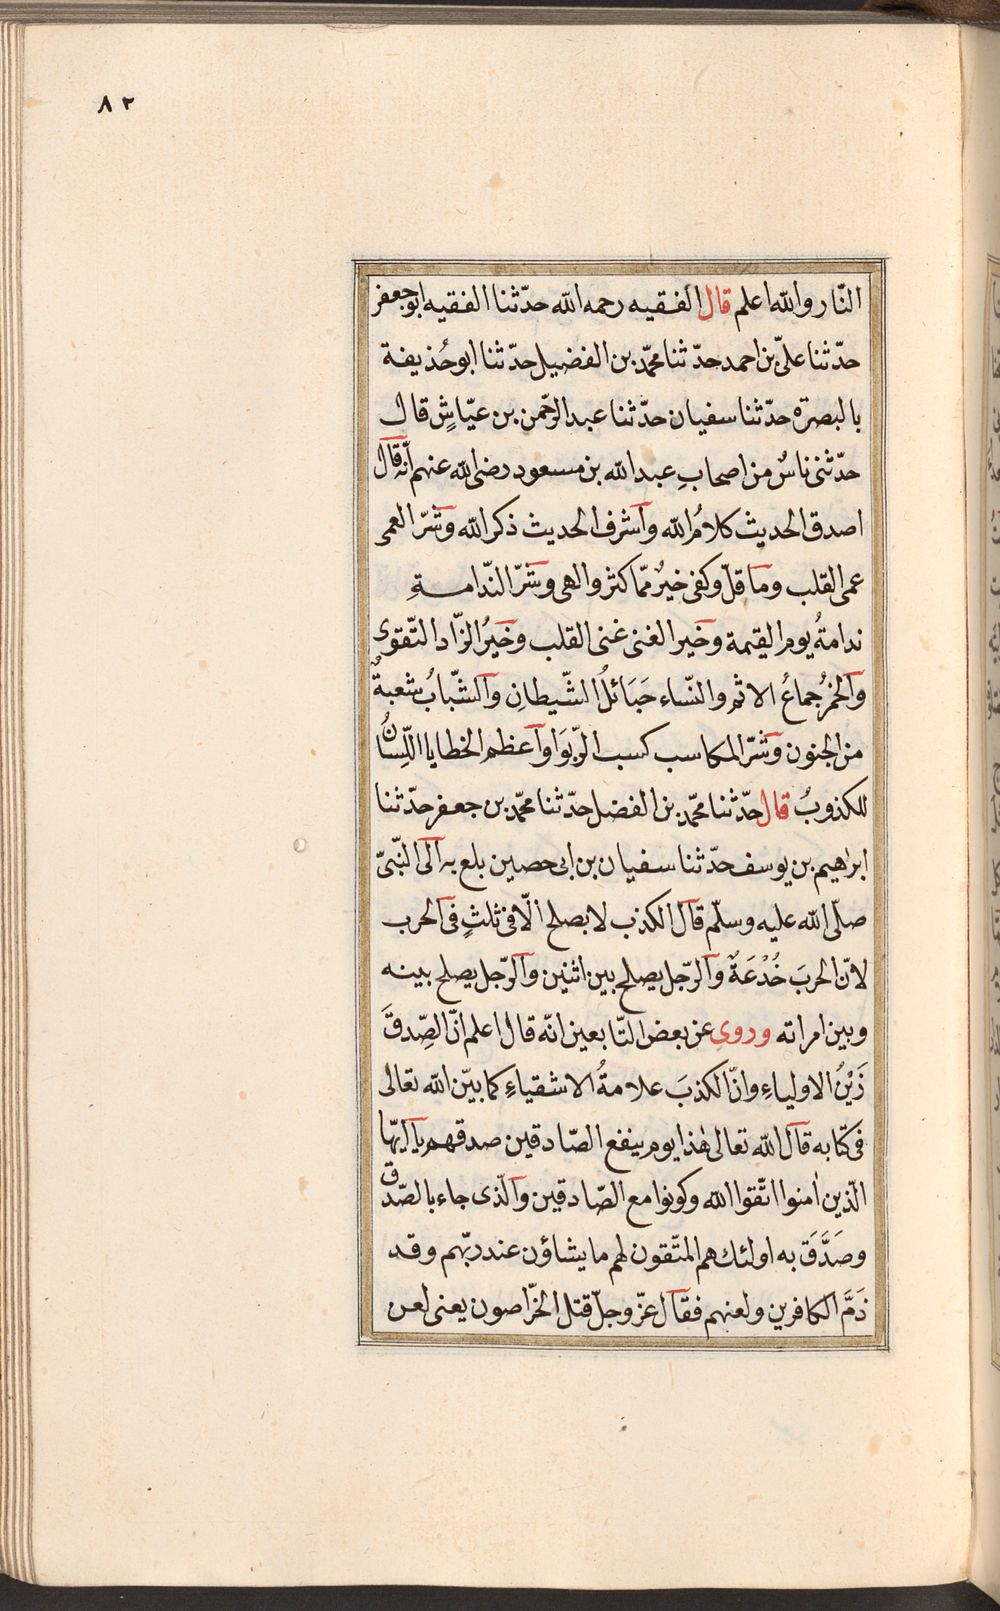 ٨٢
النّار والله اعلم قال الفقيه رحمه الله حدّثنا الفقيه ابو جعفر
حدّثنا علىّ بن احمد حدّثنا محمّد بن الفضيل حدّثنا ابو حُذيفة
بالبصرة حدّثنا سفيان حدّثنا عبد الرّحمن بن عيّاشٍ قال
حدّثنى ناسٌ من اصحابِ عبد الله بن مسعود رضى الله عنهم انّه قال
اصدق الحديث كلامُ الله واشرف الحديث ذكر الله وشرّ العمى
عمى القلب وما قلّ وكفى خيرٌ ممّا كثر والهى وشرّ النّدامةِ
ندامةُ يوم القيمة وخير الغنى غنى القلب وخيرُ الزّاد التّقوى
والخمرُ جماعُ الاثم والنّساء حَبَائلُ الشّيطانِ والشّبابُ شعبةٌ
من الجنون وشرّ المكاسب كسب الرّبوَا واعظم الخطايا اللّسانُ
للكذوبُ قال حدّثنا محمّد بن الفضل حدّثنا محمّد بن جعفر حدّثنا
ابرٰهيم بن يوسف حدّثنا سفيان بن ابى حصين بلع به الى النّبىّ
صلّى الله عليه وسلّم قال الكذب لا يصلح الّا فى ثلثٍ فى الحرب
لانّ الحربَ خُدْعَةٌ والرّجل يصلح بين اثنين والرّجل يصلح بينه
وبين امراته وروى عن بعض التّابعين انّه قال اعلم انّ الصّدقَ
زَيْنُ الاولياءِ وانّ الكذبَ علامةُ الاشقياءِ كما بيّن الله تعالى
فى كتابه قال الله تعالى هٰذا يوم ينفع الصّادقين صدقهم يا ايّها
الّذين اٰمنوا اتّقوا الله وكونوا مع الصّادقين والّذى جاء بالصّدق
وصَدَّقَ به اولئك هم المتّقون لهم ما يشاؤن عند ربّهم وقد
ذَمَّ الكافرين ولعنهم فقال عزّ وجلّ قتل الخرّاصون يعنى لعن